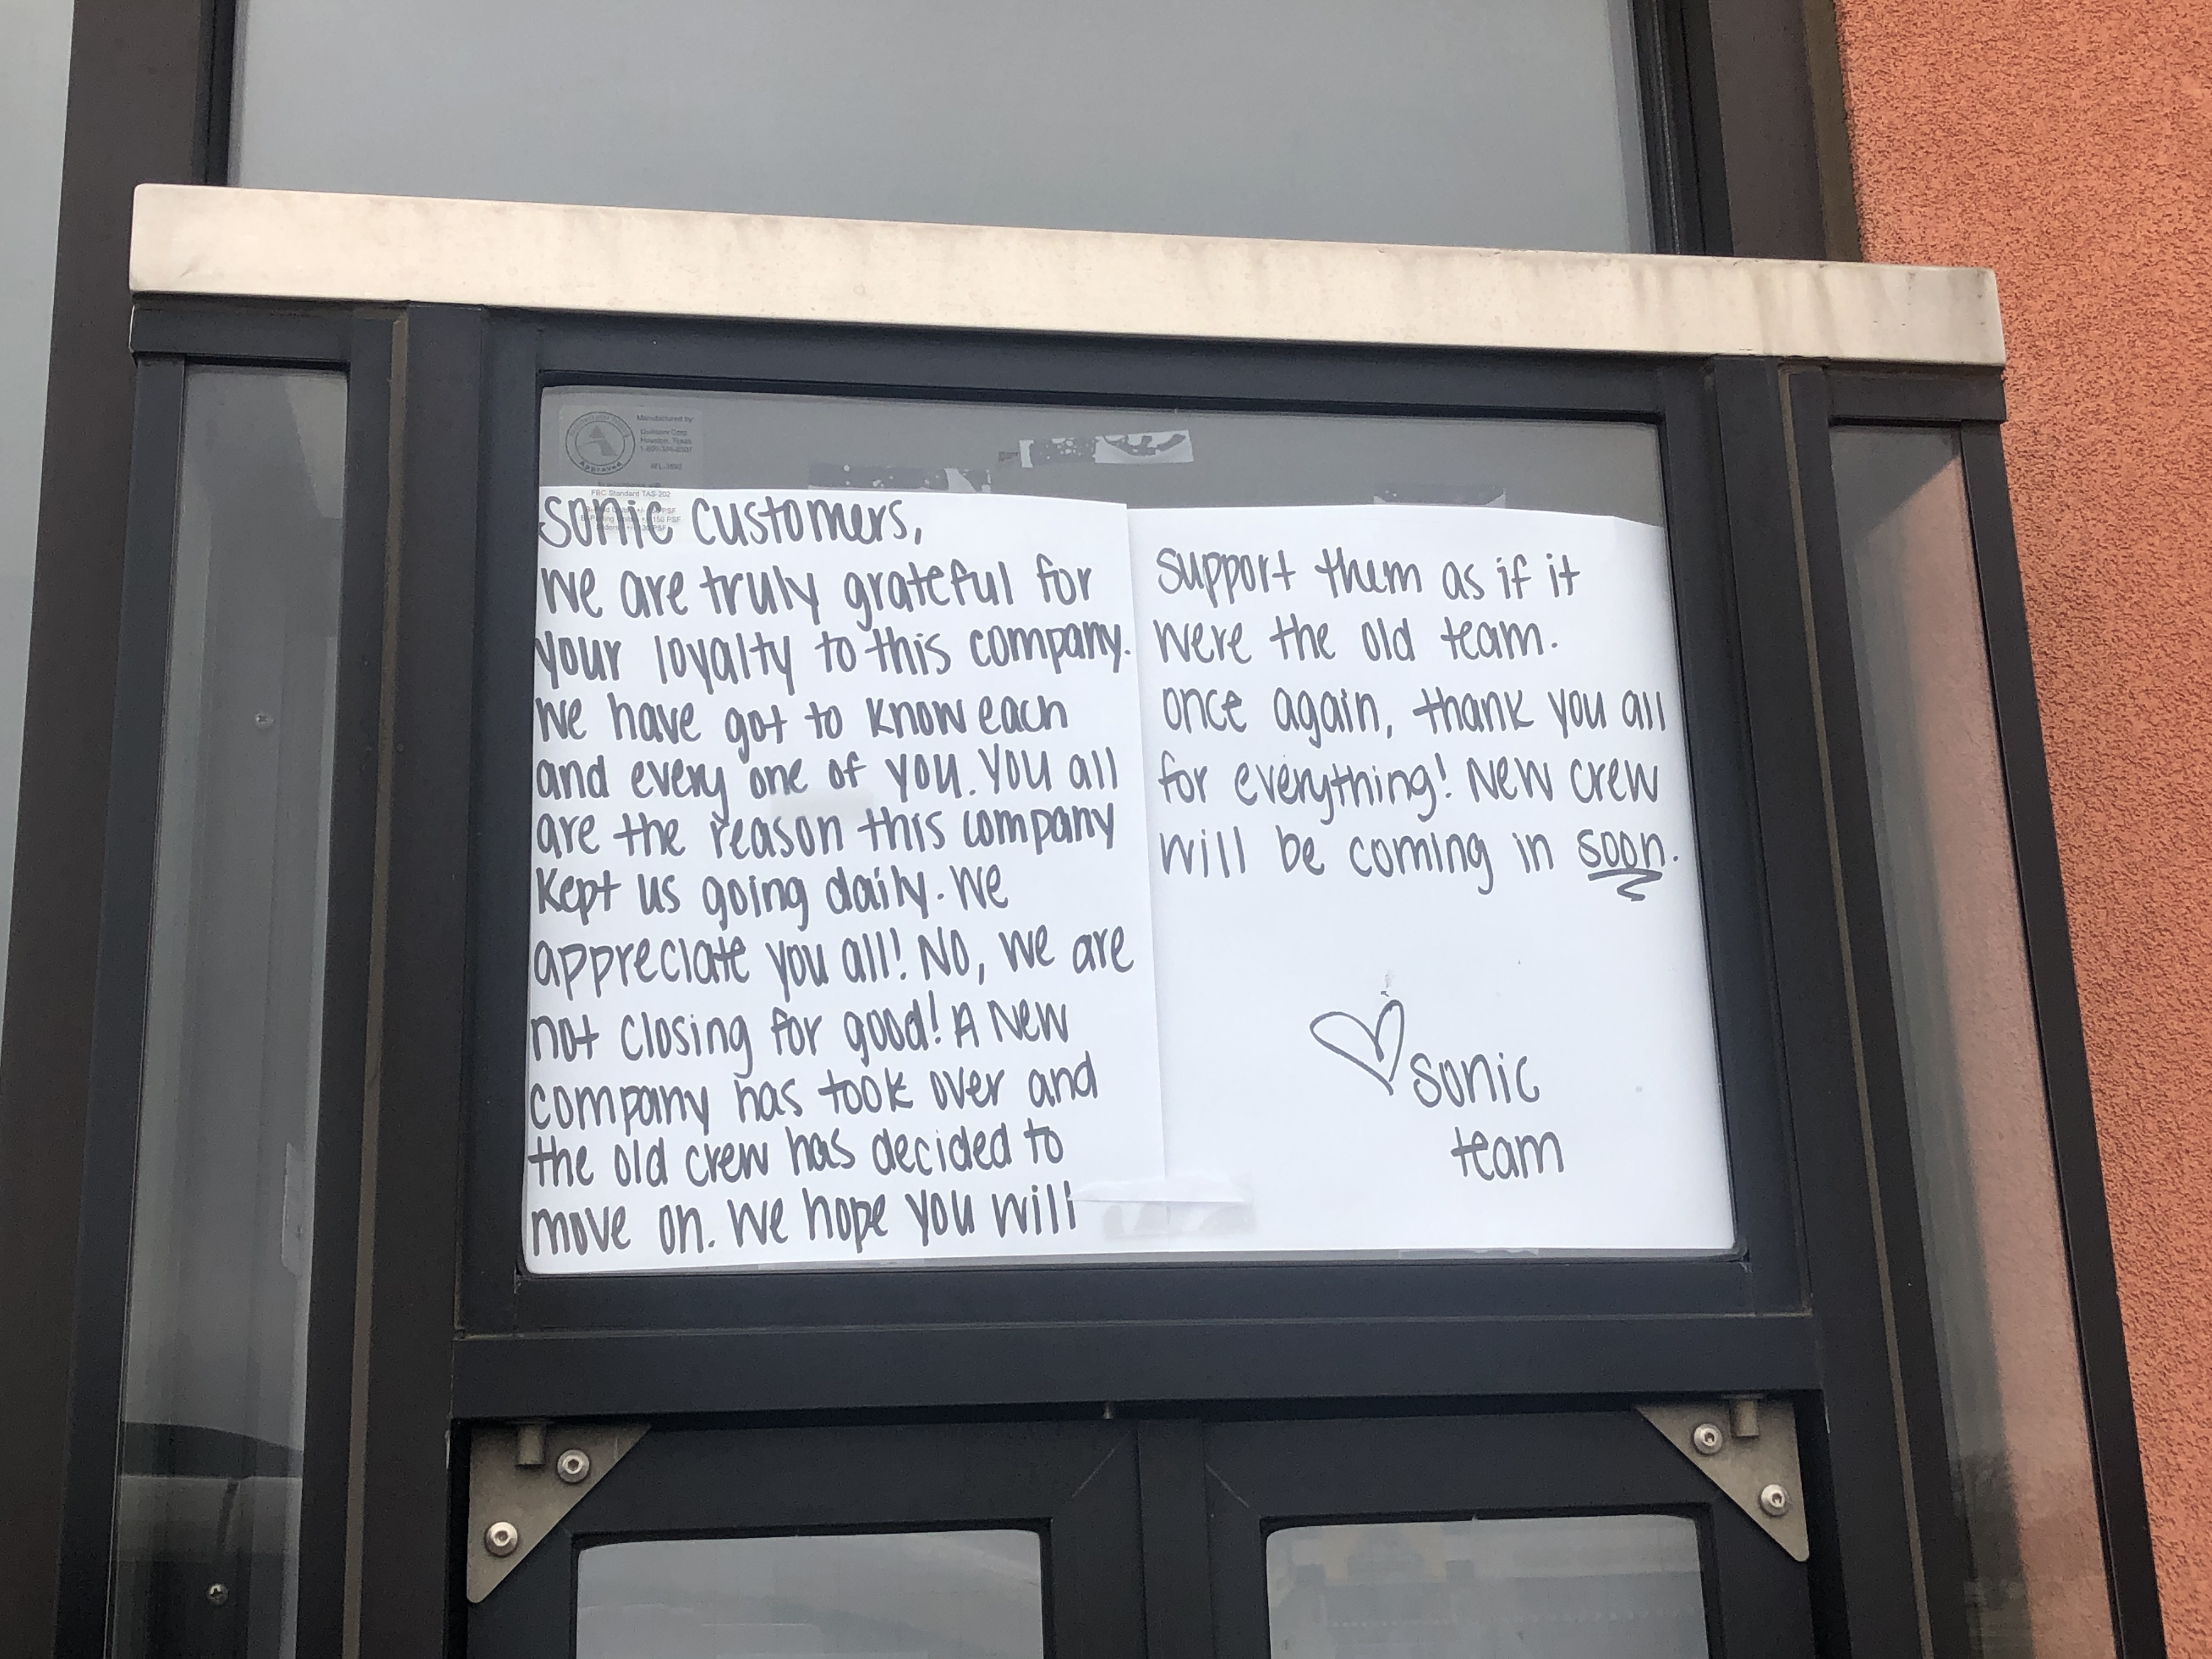 Manufactured by:
Houston, Texas
Approved
FBC Standard TAS-202
Sonic customers,
We are truly grateful for
your loyalty to this company.
We have got to know each
and every one of you. You all
are the reason this company
kept us going daily. We
appreciate you all! No, we are
not closing for good! A New
company has took over and
the old crew has decided to
move on. We hope you will
support them as if it
were the old team.
once again, thank you all
for everything! New crew
will be coming in soon.
sonic
team